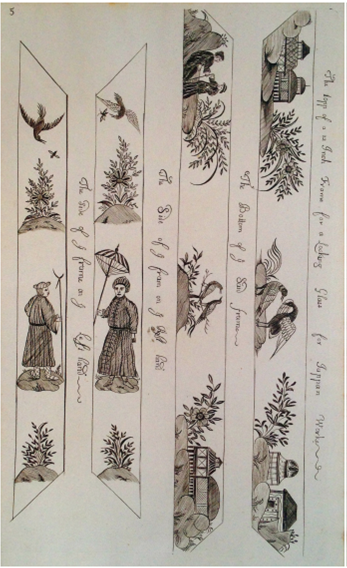 5
The topp of a 12 Inch Frame for a Looking Glass for Jappan Worke
The Bottom of y Said frame
The Side of y fram on y hand
The Side of y frame on y Left hand